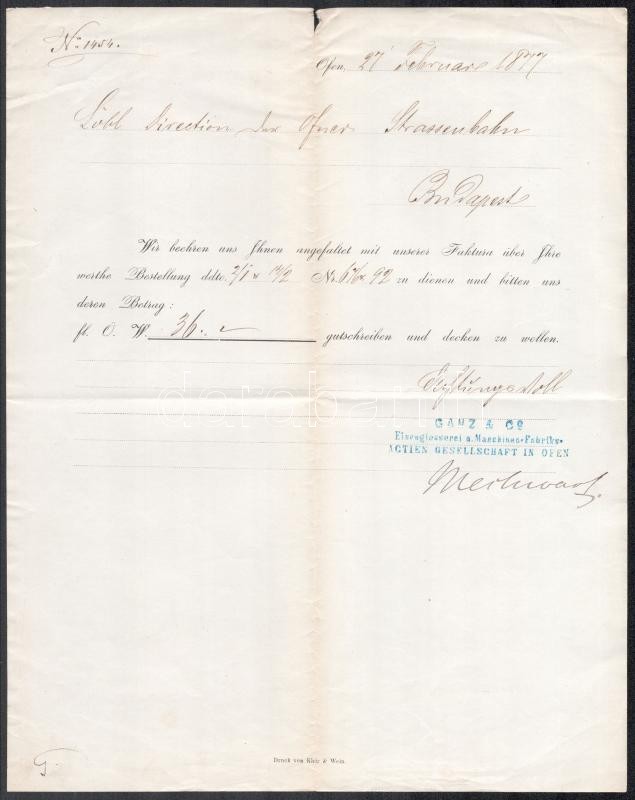 No 1454.
Ofen, 27 Februar 1877
Löbl Direction der Ofner Strassenbahn
Budapest
Wir beehren uns Ihnen angefaltet mit unserer Faktura über Ihre
werthe Bestellung ddto. 2/1 & 14/2 Nr. & 92 zu dienen und bitten uns
deren Betrag:
fl. Ö. W. 36.- gutschreiben und decken zu wollen.
Achtungsvoll
GANZ & Co
Eisengiesserei u. Maschinen-Fabriks-
ACTIEN GESELLSCHAFT IN OFEN
Mechwart
Druck von Klein & Wein.